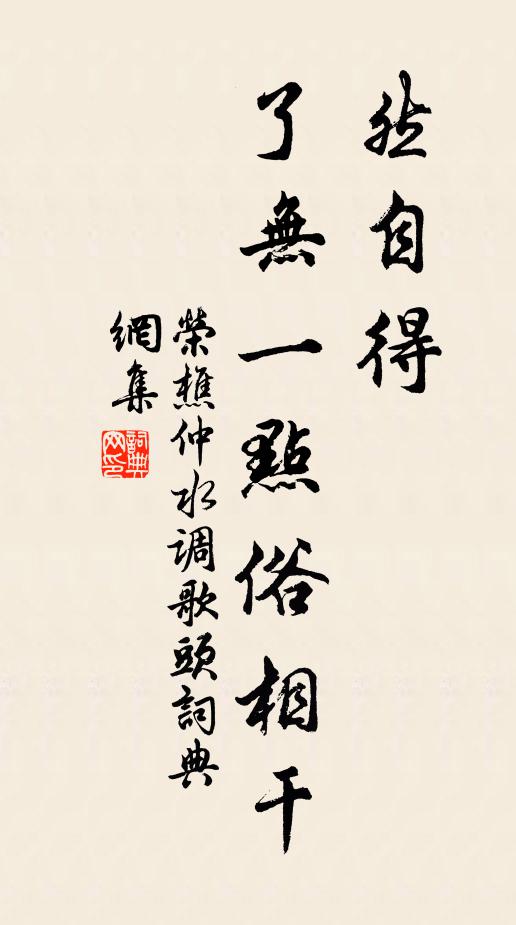 然自得
了無一點俗相干
榮樵仲水調歌頭詞典
網集
詞典
網印